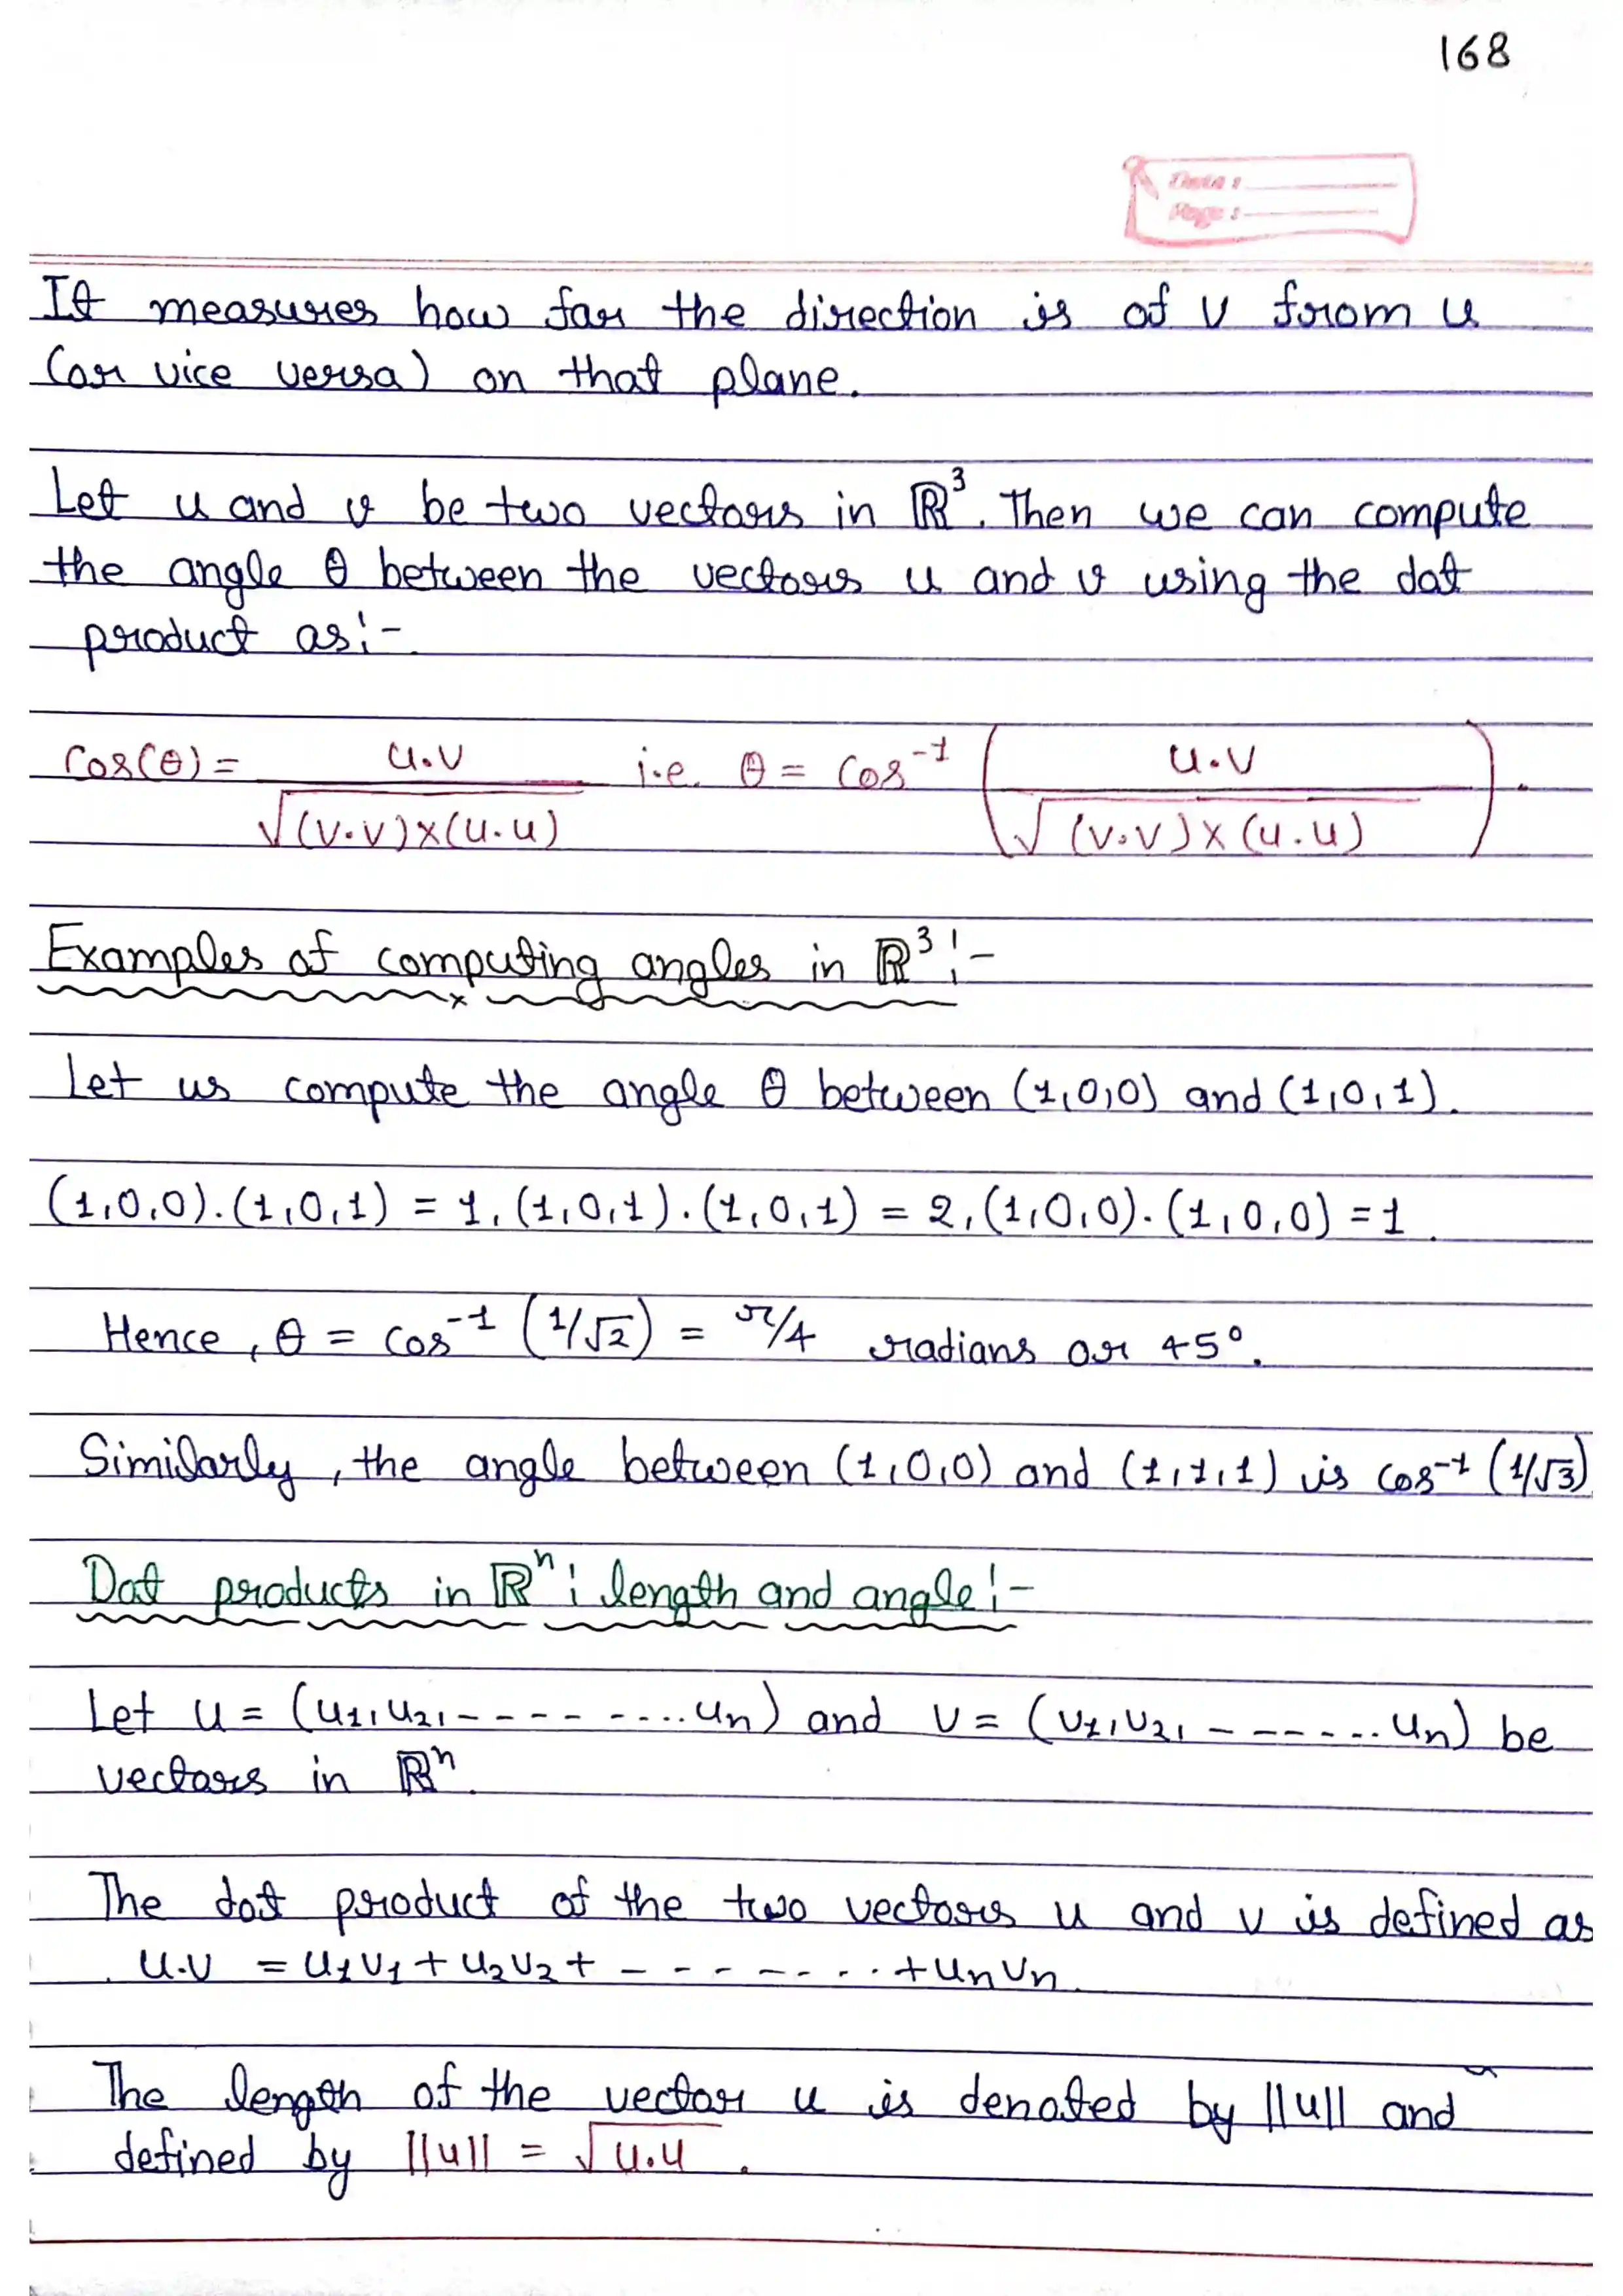 168
Date :
Page :
It measures how far the direction is of v from u
(or vice versa) on that plane.
Let u and v be two vectors in ℝ³. Then we can compute
the angle θ between the vectors u and v using the dot
product as:-
Cos(θ) = u.v / √(v.v)×(u.u) i.e. θ = Cos⁻¹ ( u.v / √(v.v)×(u.u) ).
Examples of computing angles in ℝ³:-
Let us compute the angle θ between (1,0,0) and (1,0,1).
(1,0,0).(1,0,1) = 1, (1,0,1).(1,0,1) = 2, (1,0,0).(1,0,0) = 1.
Hence, θ = Cos⁻¹ (1/√2) = π/4 radians or 45°.
Similarly, the angle between (1,0,0) and (1,1,1) is Cos⁻¹ (1/√3).
Dot products in ℝⁿ: length and angle:-
Let u = (u₁, u₂, - - - - - - .... uₙ) and v = (v₁, v₂, - - - - - ... uₙ) be
vectors in ℝⁿ.
The dot product of the two vectors u and v is defined as
u.v = u₁v₁ + u₂v₂ + - - - - - - . . + uₙvₙ.
The length of the vector u is denoted by ||u|| and
defined by ||u|| = √u.u.